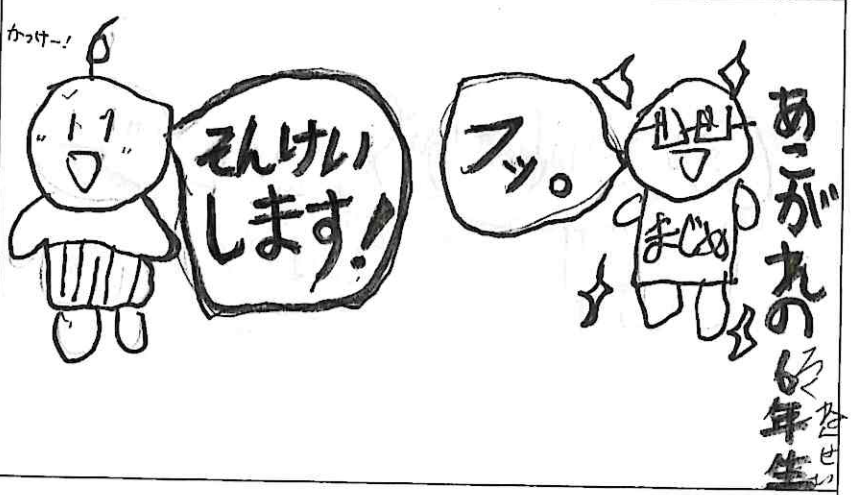 あこがれの6年生
ろくねんせい
フッ。
まじめ
そんけい
します!
かっけー!